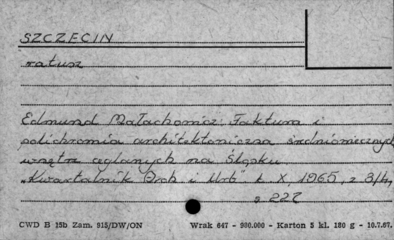 SZCZECIN
ratusz
Edmund Małachowicz: Faktura i
polichromia architektoniczna średniowiecznych
wnętrz ceglanych na Śląsku
"Kwartalnik Arch i Urb" t. X, 1965, z 3/4,
s 227
CWD B 15b Zam. 915/DW/ON Wrak 647 - 900.000 - Karton 5 kl. 180 g - 10.7.67.